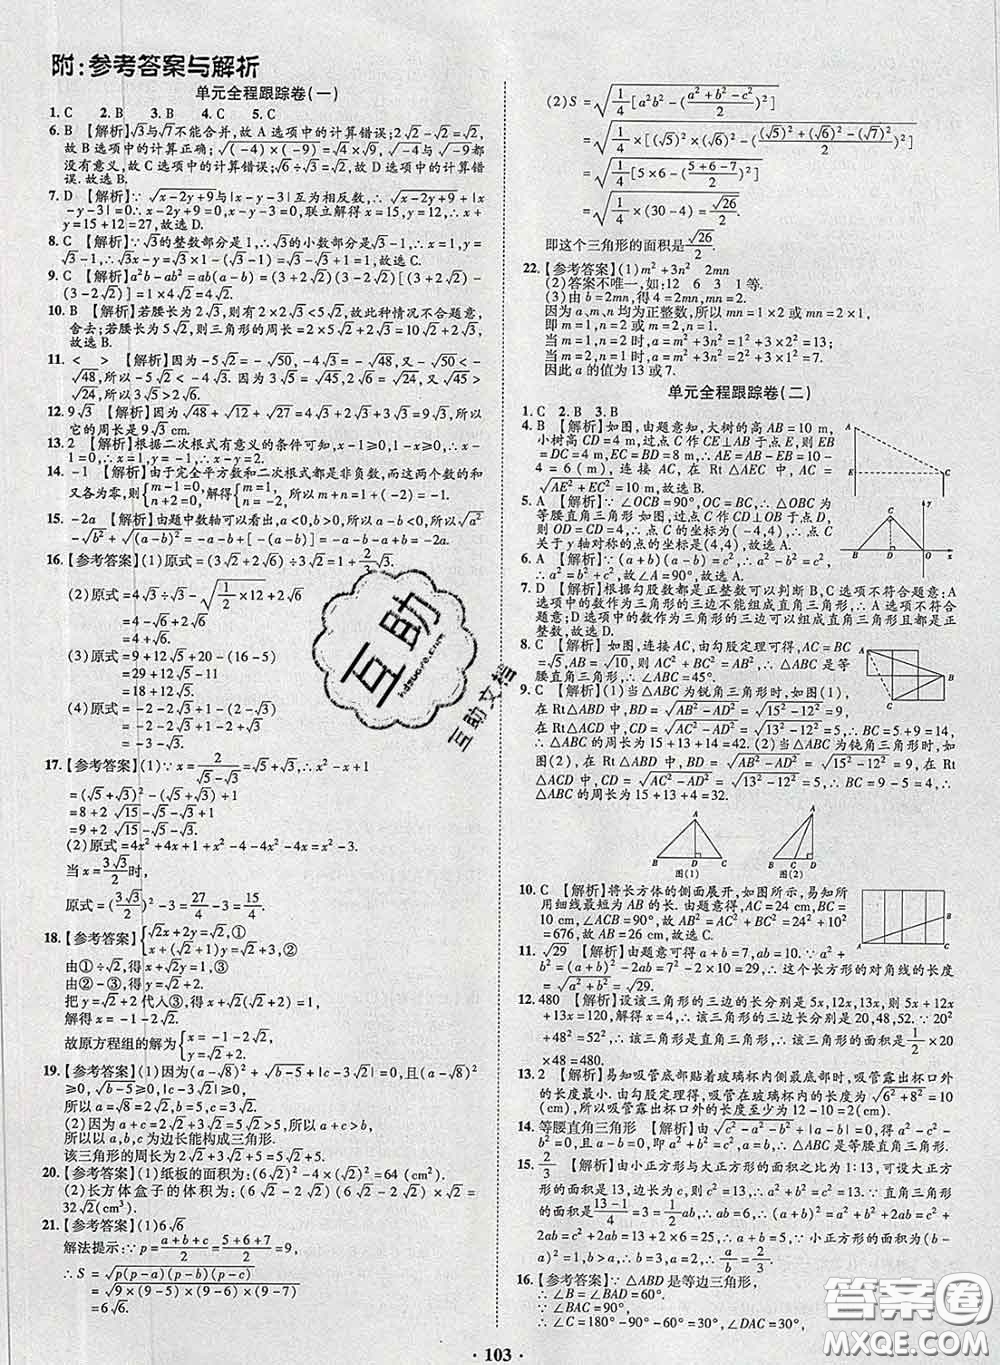 附:参考答案与解析
单元全程跟踪卷(一)
1. C 2. B 3. B 4. C 5. C
6. B 【解析】√3与√7不能合并,故 A 选项中的计算错误;2√2-√2=√2,
故 B 选项中的计算正确;√(-4)×(-9)=√4×√9,√-4与√-9都
没有意义,故 C 选项中的计算错误;√6÷√3=√2,故 D 选项中的计算错
误.故选 B.
7. D 【解析】∵√x-2y+9与|x-y-3|互为相反数,∴√x-2y+9+|x
-y-3|=0∴x-2y+9=0,x-y-3=0,联立解得 x=15,y=12,∴x+y
=15+12=27,故选 D.
8. C 【解析】∵√3的整数部分是1,∴√3的小数部分是√3-1,∴x=1,y
=√3-1,∴√3x-y=√3×1-(√3-1)=√3-√3+1=1,故选 C.
9. C 【解析】a²b-ab²=ab(a-b)=(3+2√2)(3-2√2)[(3+2√2)
-(3-2√2)]=1×4√2=4√2.
10. B 【解析】若腰长为2√3,则有2×2√3<5√2,故此种情况不合题意,
舍去;若腰长为5√2,则三角形的周长=2×5√2+2√3=10√2+2√3,
故选 B.
11. < > 【解析】因为-5√2=-√50,-4√3=-√48,又-√50<-
√48,所以-5√2<-4√3.因为2√6=√24,3√2=√18,又√24>√18,
所以2√6>3√2.
12. 9√3 【解析】因为√48+√12+√27=4√3+2√3+3√3=9√3,所以
它的周长是9√3 cm.
13. 2 【解析】根据二次根式有意义的条件可知,x-1≥0,1-x≥0,∴x
=1,∴|-x-1|=|-1-1|=2.
14. -1 【解析】由于完全平方数和二次根式都是非负数,而这两个数的和
又各为零,则{m-1=0,n+2=0,解得{m=1,n=-2,所以 m+n=1+(-2)=-1.
15. -2a 【解析】由题中数轴可以看出,a<0,b>0,所以 a-b<0,所以√a²
-√b²+√(a-b)²=-a-b+[-(a-b)]=-a-b-a+b=-2a.
16.【参考答案】(1)原式=(3√2+2√6)÷3√2=1+2/3√3.
(2)原式=4√3÷√3-√1/2×12+2√6
=4-√6+2√6
=4+√6.
(3)原式=9+12√5+20-11
=29+12√5-11
=18+12√5.
(4)原式=2√2+√3-1-√2+1
=2√2-√2+√3-1+1
=√2+√3.
17.【参考答案】(1)∵x=2/(√5-√3)=√5+√3,∴x²-x+1
=(√5+√3)²-(√5+√3)+1
=8+2√15-√5-√3+1
=9+2√15-√5-√3.
(2)原式=4x²+4x+1+x²-4-4x²-4x=x²-3.
当 x=3√3/2时,
原式=(3√3/2)²-3=27/4-3=15/4.
18.【参考答案】{√2x+2y=√2,①
x+(√2+1)y=√2+3,②
由①÷√2,得 x+√2y=1,③
由②-③,得 y=√2+2,
把 y=√2+2代入③,得 x+√2(√2+2)=1,
解得 x=-1-2√2.
故原方程组的解为{x=-1-2√2,y=√2+2.
19.【参考答案】(1)因为(a-√8)²+√b-5+|c-3√2|=0,且(a-√8)²
≥0,√b-5≥0,|c-3√2|≥0,
所以 a=√8=2√2,b=5,c=3√2.
(2)因为 a+c=2√2+3√2=5√2>5,所以 a+c>b.
所以以 a,b,c 为边长能构成三角形.
该三角形的周长为2√2+5+3√2=5√2+5.
20.【参考答案】(1)纸板的面积为:(6√2)²-4×(√2)²=64(cm²)
(2)长方体盒子的体积为:(6√2-2√2)(6√2-2√2)×√2=
32√2(cm³).
21.【参考答案】(1)6√6
解法提示:∵p=(a+b+c)/2=(5+6+7)/2=9,
∴S=√p(p-a)(p-b)(p-c)
=√9×(9-5)×(9-6)×(9-7)
=6√6.
(2)S=√1/4[a²b²-((a²+b²-c²)/2)²]
=√1/4[(√5)²×(√6)²-(((√5)²+(√6)²-(√7)²)/2)²]
=√1/4[5×6-((5+6-7)/2)²]
=√1/4×(30-4)=√26/2.
即这个三角形的面积是√26/2.
22.【参考答案】(1)m²+3n² 2mn
(2)答案不唯一,如:12 6 3 1等.
(3)由 b=2mn,得4=2mn,mn=2.
因为 a,m,n 均为正整数,所以 mn=1×2或 mn=2×1.
即 m=1,n=2或 m=2,n=1.
当 m=1,n=2时,a=m²+3n²=1²+3×2²=13;
当 m=2,n=1时,a=m²+3n²=2²+3×1²=7.
因此 a 的值为13或7.
单元全程跟踪卷(二)
1. C 2. B 3. B
4. B 【解析】如图,由题意知,大树的高 AB=10 m,
小树高 CD=4 m,过点 C 作 CE⊥AB 于点 E,则 EB
=CD=4 m,EC=BD=8 m,∴AE=AB-EB=
10-4=6(m),连接 AC,在 Rt△AEC 中,AC=
√AE²+EC²=10 m,故选 B.
5. A 【解析】∵∠OCB=90°,OC=BC,∴△OBC为
等腰直角三角形.如图,过点 C 作 CD⊥OB 于点 D,
则 OD=CD=4,∴点 C 的坐标为(-4,4),∴点 C
关于 y 轴对称的点的坐标是(4,4),故选 A.
6. A 【解析】∵(a+b)(a-b)=c²,∴a²-b²=c²,∴b²
+c²=a²,故∠A=90°,故选 A.
7. D 【解析】根据勾股数都是正整数可以判断 B、C 选项不符合题意;A
选项中的数作为三角形的三边不能组成直角三角形,∴A 选项不符合题
意;D 选项中的数作为三角形的三边可以组成直角三角形且都是正整数.
8. C 【解析】如图,连接 AC,由勾股定理可知 AC=
√5,AB=√10,所以 AC²+BC²=AB²,所以△ABC
是等腰直角三角形,∴∠ABC=45°.
9. C 【解析】(1)当△ABC 为锐角三角形时,如图(1),
在 Rt△ABD 中,BD=√AB²-AD²=√15²-12²=9,
在 Rt△ACD 中,CD=√AC²-AD²=√13²-12²=5,∴BC=5+9=14,
∴△ABC 的周长为15+13+14=42.(2)当△ABC 为钝角三角形时,
如图(2),在 Rt△ABD 中,BD=√AB²-AD²=√15²-12²=9,在
Rt△ACD 中,CD=√AC²-AD²=√13²-12²=5,∴BC=9-5=4,
∴△ABC 的周长为15+13+4=32.
图(1) 图(2)
10. C 【解析】将长方体的侧面展开,如图所示,易知
所用细线最短为 AB 的长.由题意得,AC=24 cm,BC=
10 cm,∠ACB=90°,故由勾股定理得 AB²=24²+10²
=676,故 AB=26 cm,故选 C.
11. √29 【解析】由题意可得{a+b=7,ab=10.∵a²+
b²=(a+b)²-2ab=7²-2×10=29,∴这个长方形的对角线的长度
=√a²+b²=√29.
12. 480 【解析】设该三角形的三边的长分别是5x,12x,13x,则5x+12x
+13x=120,解得 x=4,则该三角形的三边的长分别是20,48,52.∵20²
+48²=52²,∴该三角形是直角三角形,∴该三角形的面积是1/2×20
×48=480.
13. 2 【解析】易知吸管底部贴着玻璃杯内侧最下端时,吸管露出杯口外
的长度最小.由勾股定理得,吸管在玻璃杯内的长度为√6²+8²=10
(cm),∴吸管露出杯口外的长度至少为12-10=2(cm).
14. 等腰直角三角形 【解析】由√c²-a²-b²+|a-b|=0,得 c²=a²+b²,
且 a=b,∴△ABC 是等腰直角三角形.
15. 2/3 【解析】由小正方形与大正方形的面积之比为1:13,可设大正方
形的面积为13,则 c²=13,∴a²+b²=c²=13.∵直角三角形的面积
是(13-1)/4=3,∴1/2ab=3,∴ab=6,∴(a+b)²=a²+b²+2ab=c²+
2ab=13+2×6=25,∴a+b=5.∵小正方形的边长为1,∴b-a
=1.又∵b>a,∴b=3,a=2,∴a/b=2/3.
16.【参考答案】∵△ABD 是等边三角形,
∴∠B=∠BAD=60°.
∵∠BAC=90°,
∴∠C=180°-90°-60°=30°,∠DAC=
· 103 ·
互助
互助文档
答案圈
MXQE.COM